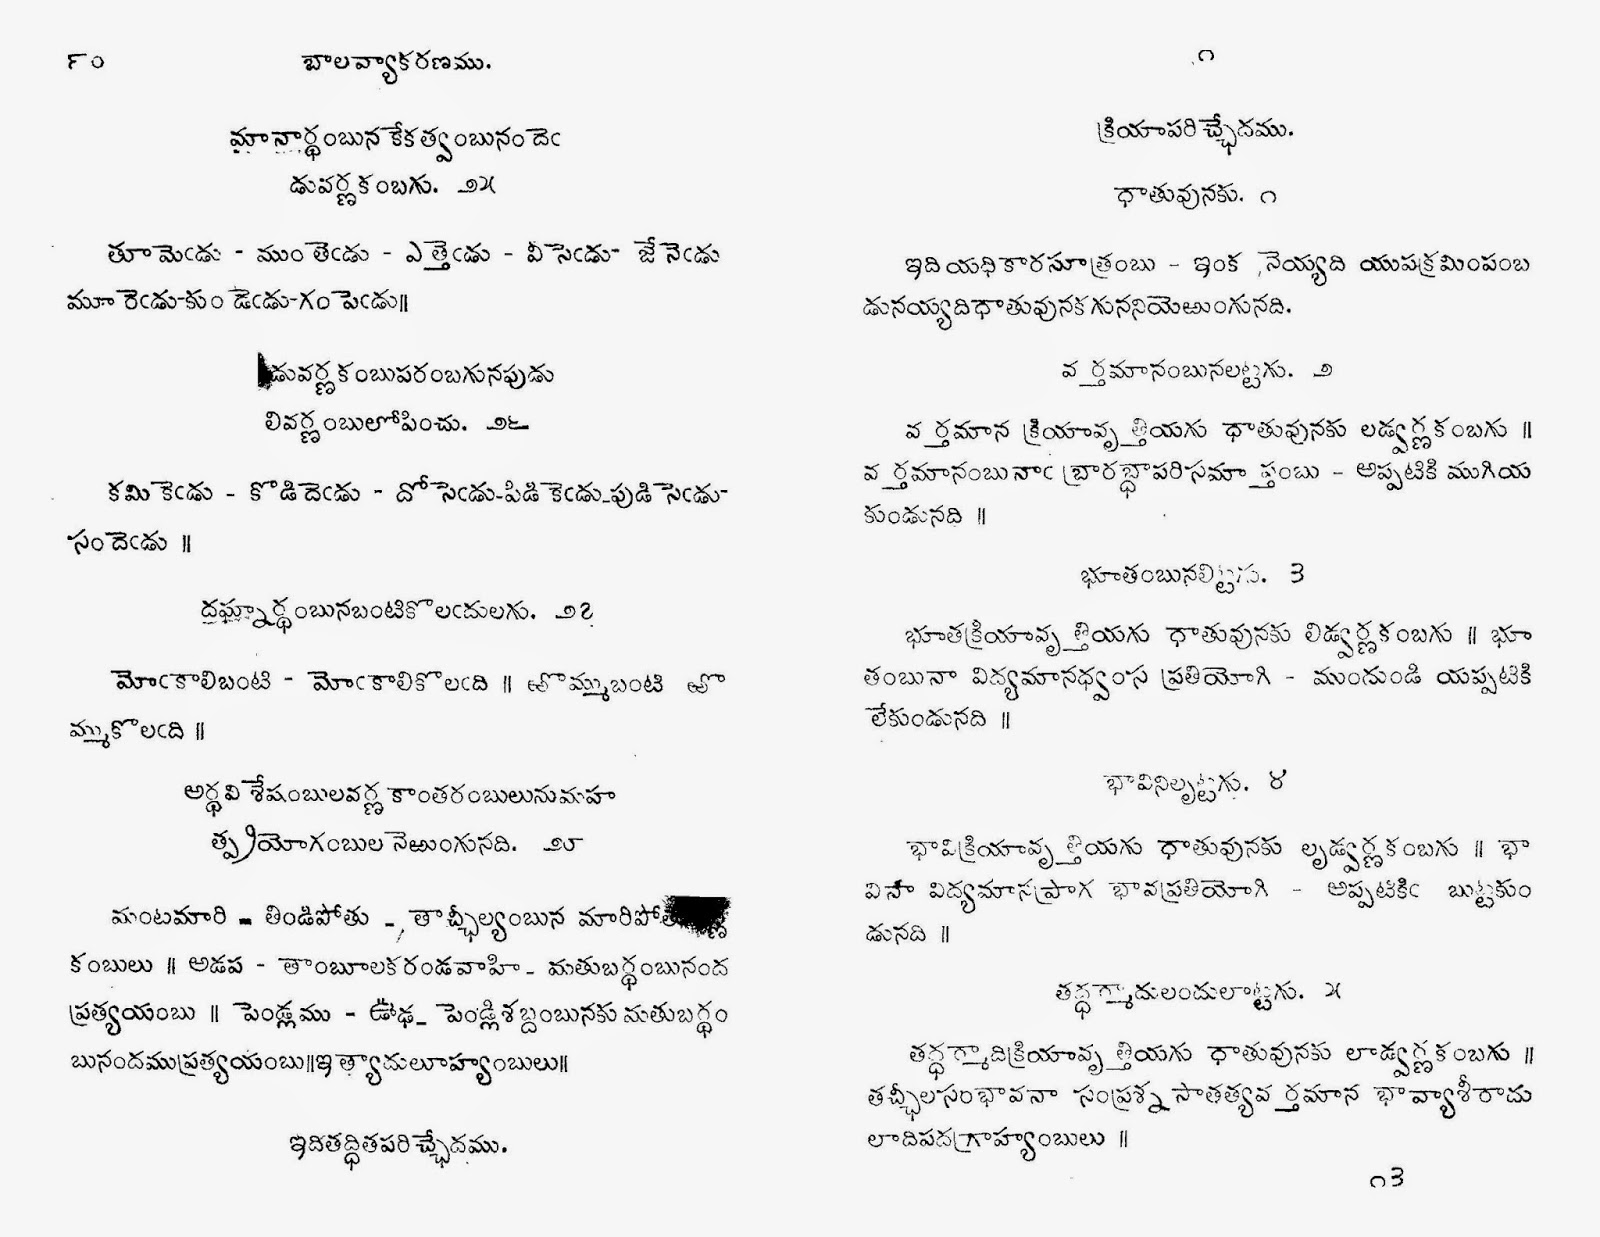 ౯౦ బాలవ్యాకరణము.
మానార్థంబున కేకత్వంబునందెఁ
డువర్ణకంబగు. ౨౫
తూమెఁడు - ముంతెఁడు - ఎత్తెఁడు - వీసెఁడు - జేనెఁడు
మూరెఁడు-కుండెఁడు-గంపెఁడు॥
డువర్ణకంబుపరంబగునపుడు
లివర్ణంబులోపించు. ౨౬
కమికెఁడు - కొడిదెఁడు - దోసెఁడు-పిడికెఁడు-పుడిసెఁడు-
సందెఁడు ॥
దఘ్నార్థంబునబంటికొలఁదులగు. ౨౭
మోఁకాలిబంటి - మోఁకాలికొలఁది ॥ ఱొమ్ముబంటి ఱొ
మ్ముకొలఁది ॥
అర్థవిశేషంబులవర్ణకాంతరంబులునుమహ
త్ప్రయోగంబుల నెఱుంగునది. ౨౮
మంటమారి - తిండిపోతు - తాచ్ఛీల్యంబున మారిపోతు
కంబులు ॥ అడప - తాంబూలకరండవాహి - మతుబర్థంబునంద
ప్రత్యయంబు ॥ పెండ్లము - ఊఢ - పెండ్లిశబ్దంబునకు మతుబర్థం
బునందముప్రత్యయంబు॥ఇత్యాదులూహ్యంబులు॥
ఇదితద్ధితపరిచ్ఛేదము.
౧
క్రియాపరిచ్ఛేదము.
ధాతువునకు. ౧
ఇదియధికారసూత్రంబు - ఇంక నెయ్యది యుపక్రమింపంబ
డునయ్యదిధాతువునకగుననియెఱుంగునది.
వర్తమానంబునలట్టగు. ౨
వర్తమాన క్రియావృత్తియగు ధాతువునకు లడ్వర్ణకంబగు ॥
వర్తమానంబునాఁ బ్రారబ్ధాపరిసమాప్తంబు - అప్పటికి ముగియ
కుండునది ॥
భూతంబునలిట్టగు. ౩
భూతక్రియావృత్తియగు ధాతువునకు లిడ్వర్ణకంబగు ॥ భూ
తంబునా విద్యమానధ్వంస ప్రతియోగి - ముందుండి యప్పటికి
లేకుండునది ॥
భావినిలృట్టగు. ౪
భావిక్రియావృత్తియగు ధాతువునకు లృడ్వర్ణకంబగు ॥ భా
వినా విద్యమానప్రాగభావప్రతియోగి - అప్పటికిఁ బుట్టకుం
డునది ॥
తద్ధర్మాదులందులాట్టగు. ౫
తద్ధర్మాదిక్రియావృత్తియగు ధాతువునకు లాడ్వర్ణకంబగు ॥
తచ్ఛీలసంభావనా సంప్రశ్న సాతత్యవర్తమాన భావ్యాశీరాదు
లాదిపదగ్రాహ్యంబులు ॥
౧౩